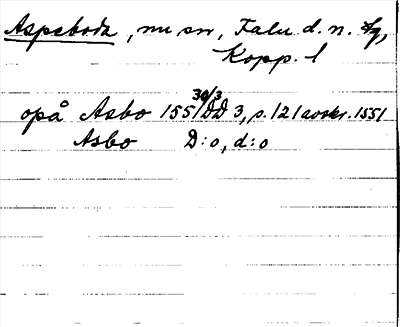 Aspeboda, nu sn, Falu d. n. tg,
Kopp. l
opå Asbo 1551 30/3 DD 3, s. 121 avskr. 1551
Asbo D:o, d:o